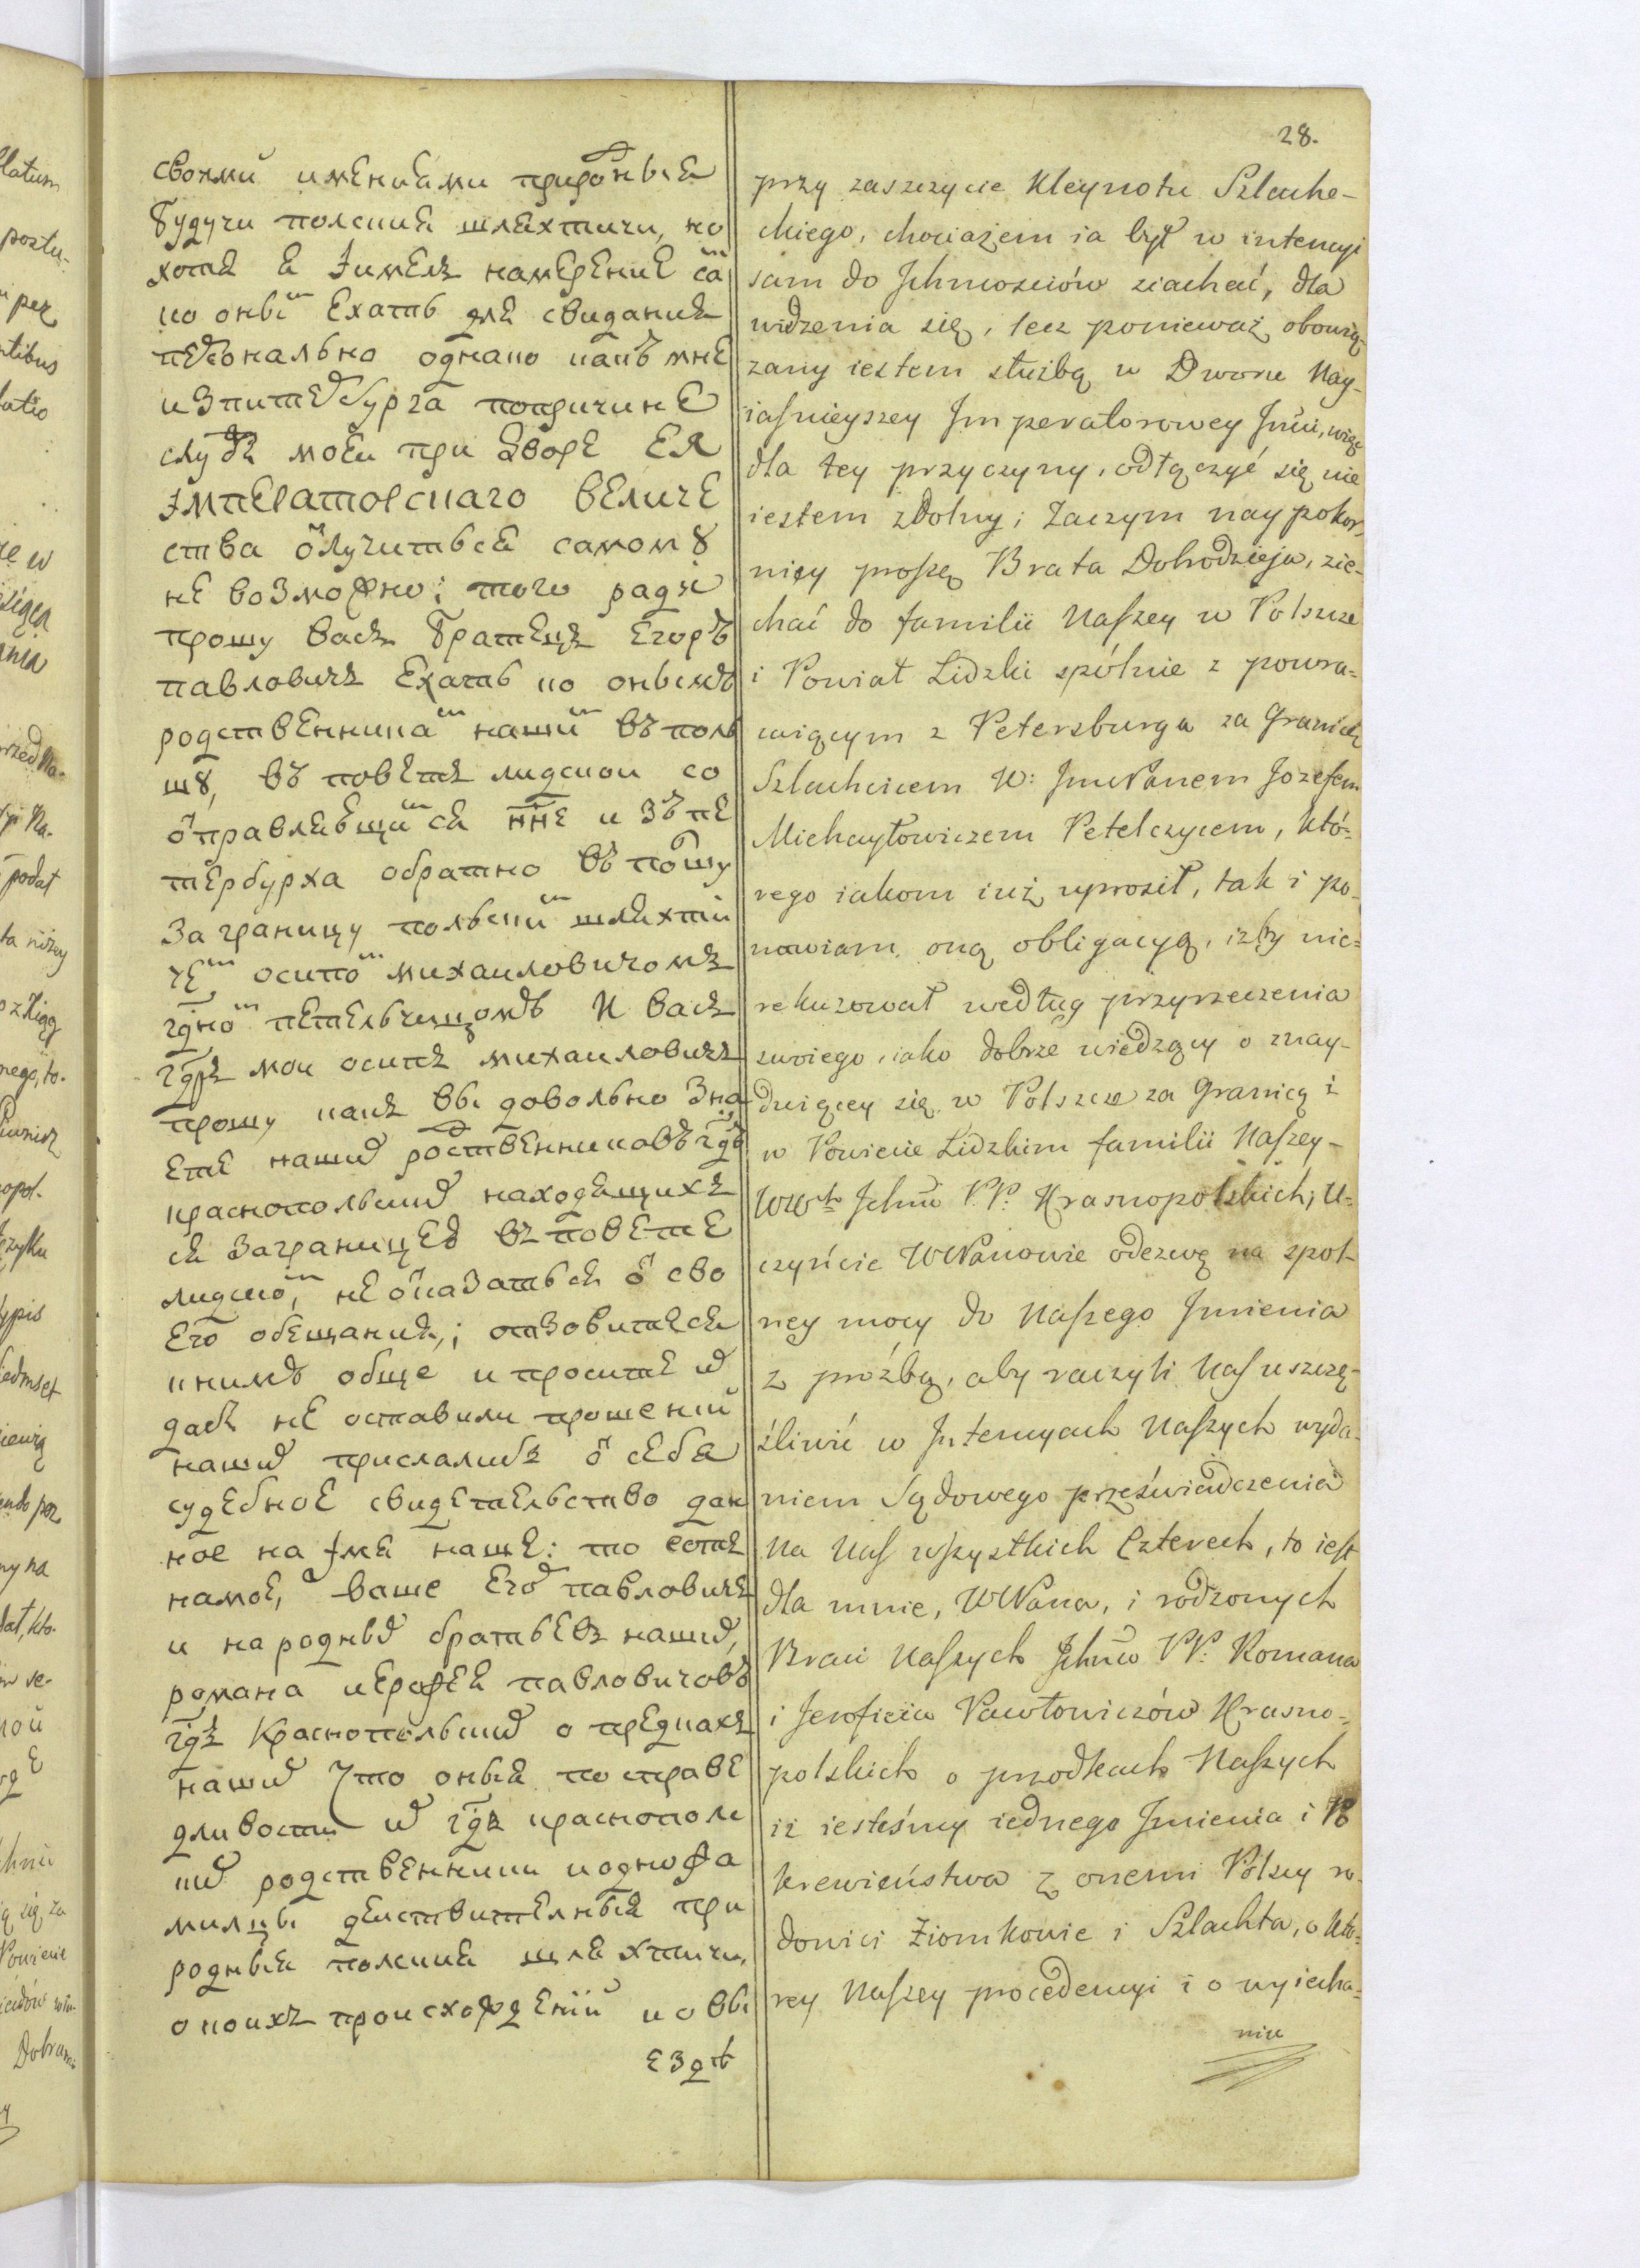 28.
своими имениами природныѧ
будучи полские шлѧхтичи, но
хотѧ ѧ імелъ намерение самъ
ко онымъ ехать длѧ свиданиѧ
персонально однако какъ мне
изпитербурга попричине
службъ моеи при дворе ея
імператорскаго величе
ства ѿлучитьсѧ самомꙋ
не возможно: того ради
прошу васъ братецъ егоръ
павловичъ ехать ко онымъ
родственникамъ нашимъ въ поль
шꙋ, въ поветъ лидскои со
ѿправлѧвщимсѧ ннѣ изъ пе
тербурха обратно въ полшу
за границу польскимъ шлѧхти
чемъ осипомъ михаиловичомъ
гдномъ петельчицомъ и васъ
гдръ мои осипъ михаиловичъ
прошу какъ вы довольно зна
ете нашихъ родственниковъ гдъ
краснопольскихъ находѧщихъ
сѧ заграницею въ повете
лидскомъ, не ѿказатьсѧ ѿ сво
его обещаниѧ,; отзовитесѧ
книмъ обще и просите их
дабъ не оставили прошении
нашихъ прислалибъ ѿ себѧ
судебное свидетельство дан
ное на імѧ наше: то есть
намое, ваше егоръ павловичъ
и народныхъ братьевъ нашихъ,
романа иерофеѧ павловичовъ
гдъ Краснопольскихъ о предкахъ
нашихъ Что оныѧ по праве
дливости их гдъ краснополс
ких родственники иоднофа
милцы деиствителныѧ при
родныѧ полские шлѧхтичи,
о коихъ происхождении и о вы
ездѣ
przy zaszczycie Kleynotu Szlache-
ckiego, chociażem ia był w intencyi
sam do Jchmościów ziachać, dla
widzenia się, lecz ponieważ obowią-
zany iestem służbą w Dworu Nay-
iaśnieyszey Imperatorowey Jmci, więc
dla tey przyczyny, odłączyć się nie
iestem zdolny; Zaczym naypokor-
niey proszę Brata Dobrodzieja, zie-
chać do familii Naszey w Polszcze
i Powiat Lidzki spólnie z powra-
caiącym z Petersburga za Granicę
Szlachcicem W: JmcPanem Jozefem
Michayłowiczem Petelczycem, któ-
rego iakom iuż uprosił, tak i po-
nawiam oną obligacyą, iżby nie-
rekuzował według przyrzeczenia
swoiego, iako dobrze wiedzący o znay-
duiącey się w Polszcze za Granicą i
w Powiecie Lidzkim familii Naszey-
WWch Jchmw PP. Krasnopolskich; U-
czyńcie WPanowie odezwę na spol-
ney mocy do Naszego Jmienia
z prożbą, aby raczyli Nas uszczę-
śliwić w Jntencyach Naszych wyda-
niem Sądowego przeświadczenia
Na Nas wszystkich Czterech, to iest
dla mnie, WWPana, i rodzonych
Braci Naszych Jchmw PP: Romana
i Jerofieia Pawłowiczów Krasno-
polskich o przodkach Naszych
iż iesteśmy iednego Jmienia i
krewieństwa z onemi Polscy ro-
dowici Ziomkowie i Szlachta, o któ-
rey Naszey procedencyi i o wyiecha-
niu